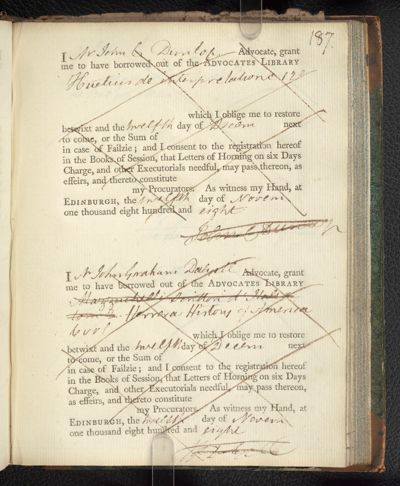 187.
I Mr John C Dunlop Advocate, grant
me to have borrowed out of the ADVOCATES LIBRARY
Huetius de interpretatione
which I oblige me to restore
betwixt and the twelfth day of Decem next
to come, or the Sum of
in case of Failzie; and I consent to the registration hereof
in the Books of Session, that Letters of Horning on six Days
Charge, and other Executorials needful, may pass thereon, as
effeirs, and thereto constitute
my Procurators. As witness my Hand, at
EDINBURGH, the twelfth day of Novem
one thousand eight hundred and eight
John C Dunlop
I Mr John Graham Dalyell Advocate, grant
me to have borrowed out of the ADVOCATES LIBRARY
Herrera History of America
6 vol
which I oblige me to restore
betwixt and the twelfth day of Decem next
to come, or the Sum of
in case of Failzie; and I consent to the registration hereof
in the Books of Session, that Letters of Horning on six Days
Charge, and other Executorials needful, may pass thereon,
as effeirs, and thereto constitute
my Procurators. As witness my Hand, at
EDINBURGH, the twelfth day of Novem
one thousand eight hundred and eight